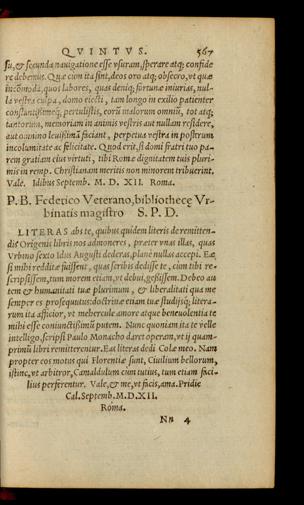 QVINTVS. 567
su, & secunda nauigatione esse vsuram, sperare atq; confide
re debemus. Quæ cum ita sint, deos oro atq; obsecro, vt quæ
incōmoda, quos labores, quas deniq; fortunæ iniurias, nul-
la vestra culpa, domo eiecti, tam longo in exilio patienter
constantissimeq́; pertulistis, eorū malorum omniū, tot atq;
tantorum, memoriam in animis vestris aut nullam residere,
aut omnino leuissimā faciant, perpetua vestra in posterum
incolumitate ac felicitate. Quod erit, si domi fratri tuo pa-
rem gratiam eius virtuti, tibi Romæ dignitatem tuis pluri-
mis in remp. Christianam meritis non minorem tribuerint.
Vale. Idibus Septemb. M. D. XII. Roma.
P. B. Federico Veterano, bibliothecę Vr-
binatis magistro S. P. D.
LITERAS abs te, quibus quidem literis de remitten-
dis Origenis libris nos admoneres, præter vnas illas, quas
Vrbino sexto Idus Augusti dederas, planè nullas accepi. Eæ
si mihi redditæ fuissent, quas scribis dedisse te, cùm tibi re-
scripsissem, tum morem etiam, vt debui, gessissem. Debeo au
tem & humanitati tuæ plurimum, & liberalitati qua me
semper es prosequutus: doctrinæ etiam tuæ studijsq́; litera-
rum ita afficior, vt mehercule amore atque beneuolentia te
mihi esse coniunctissimū putem. Nunc quoniam ita te velle
intelligo, scripsi Paulo Monacho daret operam, vt ij quam-
primū libri remitterentur. Eas literas dedi Colæ meo. Nam
propter eos motus qui Florentiæ sunt, Ciuilium bellorum,
istinc, vt arbitror, Camaldulum cùm tutius, tum etiam faci-
lius perferentur. Vale, & me, vt facis, ama. Pridie
Cal. Septemb. M. D. XII.
Roma.
Nn 4